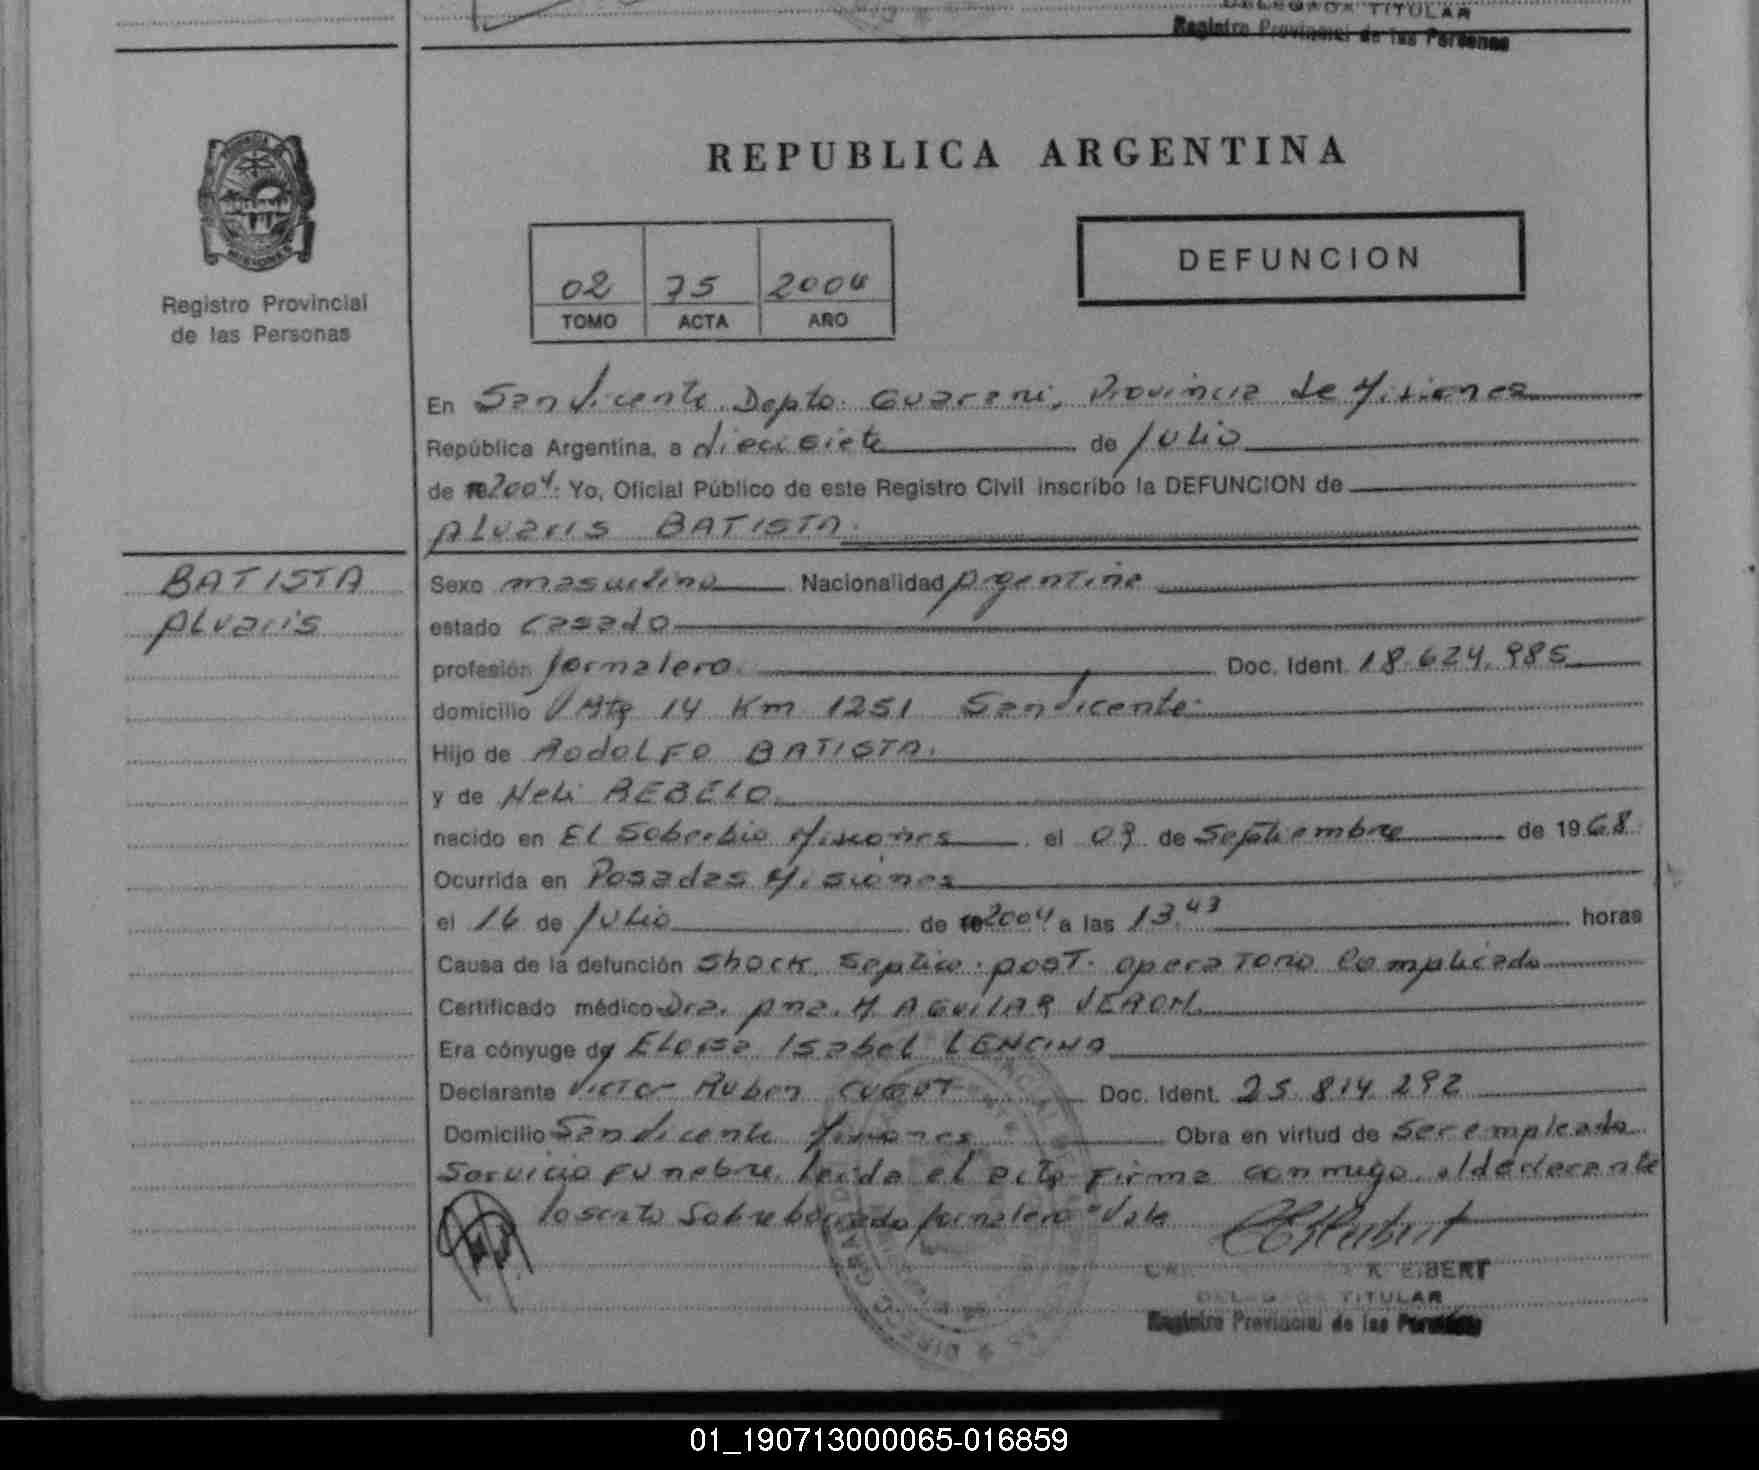 DELEGADA TITULAR
Registro Provincial de las Personas
REPUBLICA ARGENTINA
DEFUNCION
02 75 2004
TOMO ACTA AÑO
Registro Provincial
de las Personas
En San Vicente Depto. Guarani, Provincia de Misiones
República Argentina, a diecisiete de Julio
de 2004. Yo, Oficial Público de este Registro Civil inscribo la DEFUNCION de
Alvaris BATISTA.
BATISTA
Alvaris
Sexo masculino Nacionalidad Argentina
estado casado
profesión Jornalero. Doc. Ident. 18.624.985
domicilio Km 1251 San Vicente
Hijo de Rodolfo BATISTA.
y de Neli REBELO.
nacido en El Soberbio Misiones el 03 de Septiembre de 1968.
Ocurrida en Posadas Misiones
el 16 de Julio de 2004 a las 13,43 horas
Causa de la defunción Shock Septico. post. operatorio Complicado
Certificado médico Dra. Ana. M AGUILAR
Era cónyuge de Eloisa Isabel LENCINA
Declarante Victor Ruben Doc. Ident. 25.814.292
Domicilio San Vicente Misiones Obra en virtud de Ser empleado
Servicio Funebre. leida el acta Firma conmigo el declarante
lo scrito Sobre borrado Jornalero Vale
EIBERT
DELEGADA TITULAR
Registro Provincial de las Personas
01_190713000065-016859